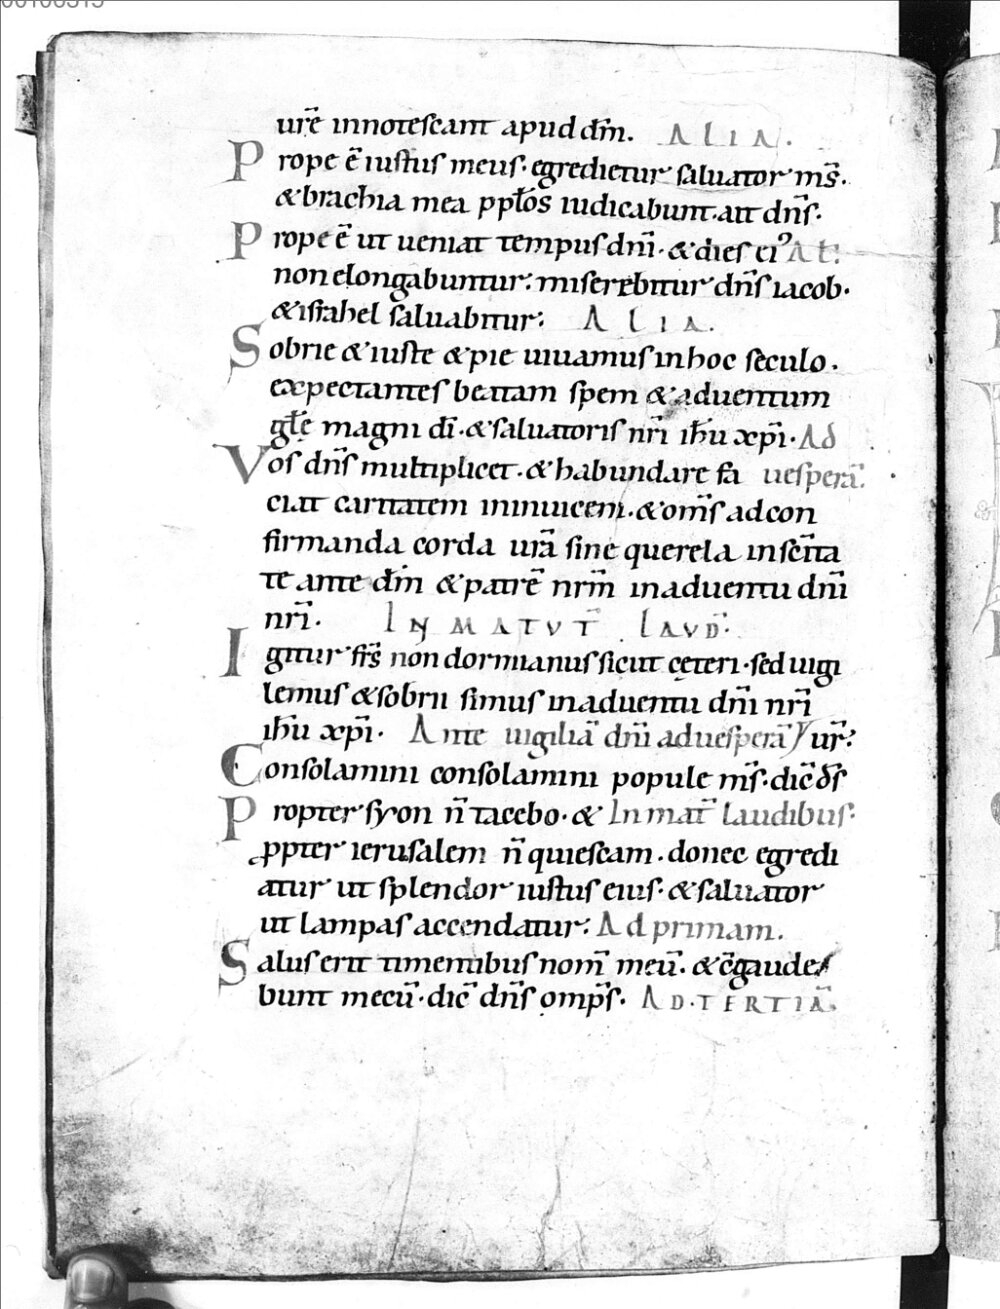 urę̄ innotescant apud dm̄. ALIA.
Prope ē iustus meus. egredietur saluator ms̄.
& brachia mea pplōs iudicabunt. ait dn̄s.
Prope ē ut ueniat tempus dn̄i. & dies eiꝰ Al.
non elongabuntur. miserebitur dn̄s iacob.
& israhel saluabitur. ALIA.
Sobrie & iuste & pie uiuamus in hoc seculo.
expectantes beatam spem & aduentum
glę̄ magni dī. & saluatoris nr̄i ih̄u xp̄i. Ad
Vos dn̄s multiplicet. & habundare fa uesperā.
ciat caritatem in inuicem. & om̄s ad con
firmanda corda ur̄a sine querela in sc̄ita
te ante dm̄ & patrē nrm̄ in aduentu dn̄i
nr̄i. IN MATVT̄ LAVD̄.
Igitur fr̄s non dormianus sicut cęteri. sed uigi
lemus & sobrii simus in aduentu dn̄i nr̄i
ih̄u xp̄i. Ante uigiliā dn̄i ad uesperā ur̄.
Consolamini consolamini popule ms̄. dic̄ ds̄
Propter syon n̄ tacebo. & In mat̄ laudibus.
ꝓpter ierusalem n̄ quiescam. donec egredi
atur ut splendor iustus eius. & saluator
ut lampas accendatur. Ad primam.
Salus erit timentibus nom̄ meū. & c̄gaude
bunt mecū. dic̄ dn̄s omp̄s. AD. TERTIĀ.